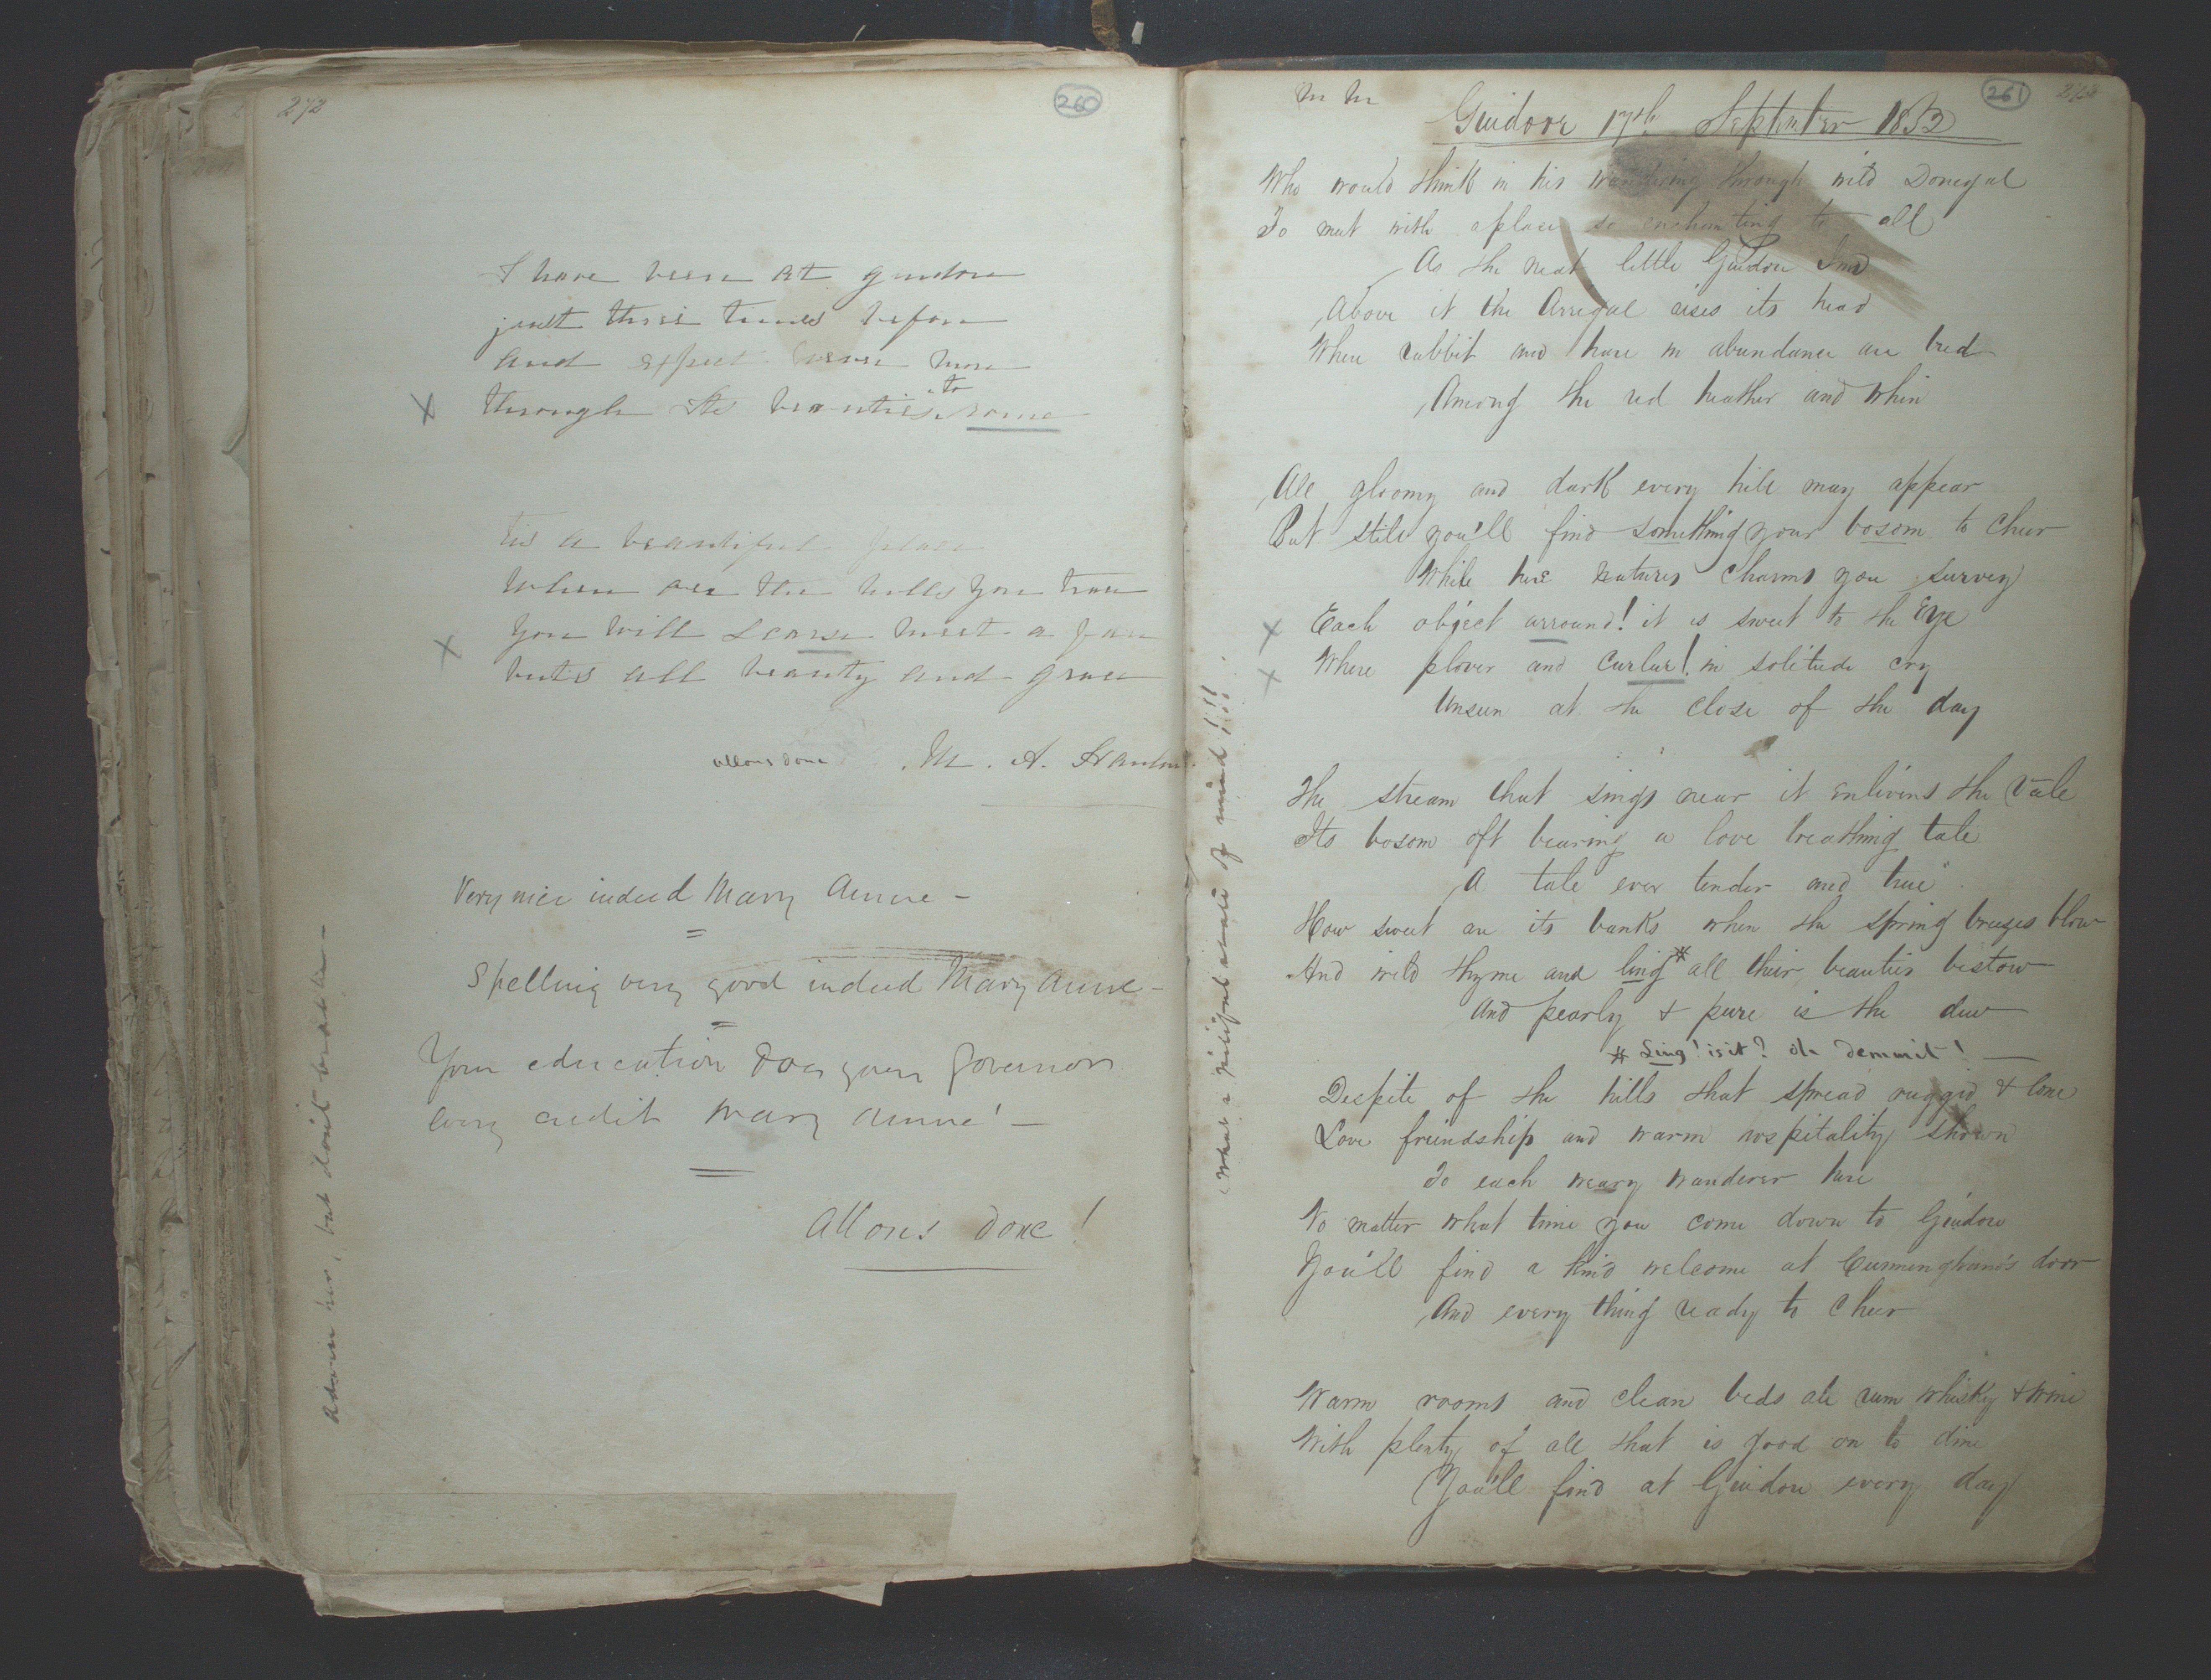 272
260
I have been at guidore
just three times before
and expect never more
through its beauties to rome
tis a beautiful place
when oer the hills you trace
you will scarse meet a face
but is all beauty and grace
allons donc M. A. Stanton
Very nice indeed Mary Anne -
Spelling very good indeed Mary Anne -
Your education does your governor
every credit Mary Anne! -
Allons donc!
Admire her, but don't
What a state of mind!!!
261
Guidore 17th September 1853
Who would think in his wandering through wild Donegal
To meet with a place so enchanting to all
As the neat little Guidore Inn
Above it the Arrigal rises its head
Where rabbit and hare in abundance are bred
Among the red heather and whin
All gloomy and dark every hill may appear
But still you'll find something your bosom to cheer
While here natures charms you survey
Each object arround! it is sweet to the Eye
Where plover and Curlur! in solitude cry
Unseen at the close of the day
The stream that sings near it enlivens the Vale
Its bosom oft bearing a love breathing tale
A tale ever tender and true
How sweet are its banks when the spring breezes blow
And wild thyme and ling* all their beauties bestow
And pearly & pure is the dew
* Ling! is it? oh demmit! -
Despite of the hills that spread rugged & lone
Love friendship and warm hospitality shown
To each weary wanderer here
No matter what time you come down to Guidore
You'll find a kind welcome at Cunningham's door
And every thing ready to cheer
Warm rooms and clean beds ale rum whisky & wine
With plenty of all that is good on to dine
You'll find at Guidore every day